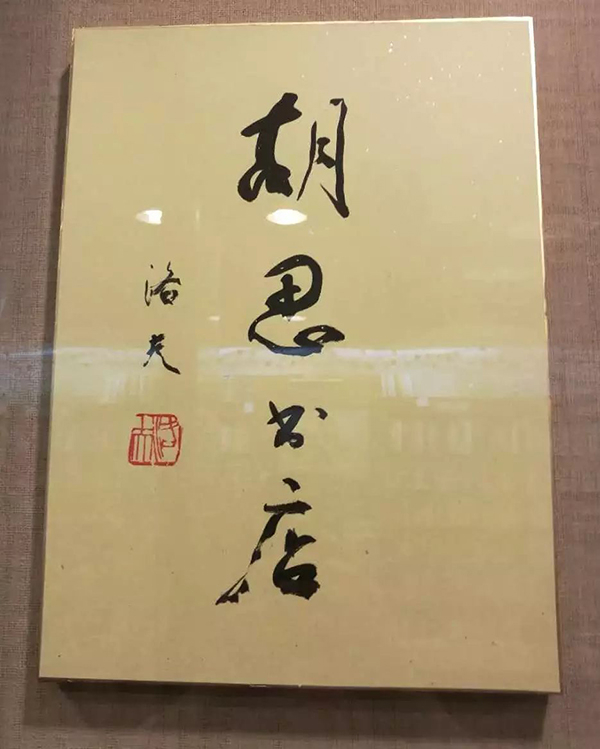 胡思书店
洛夫